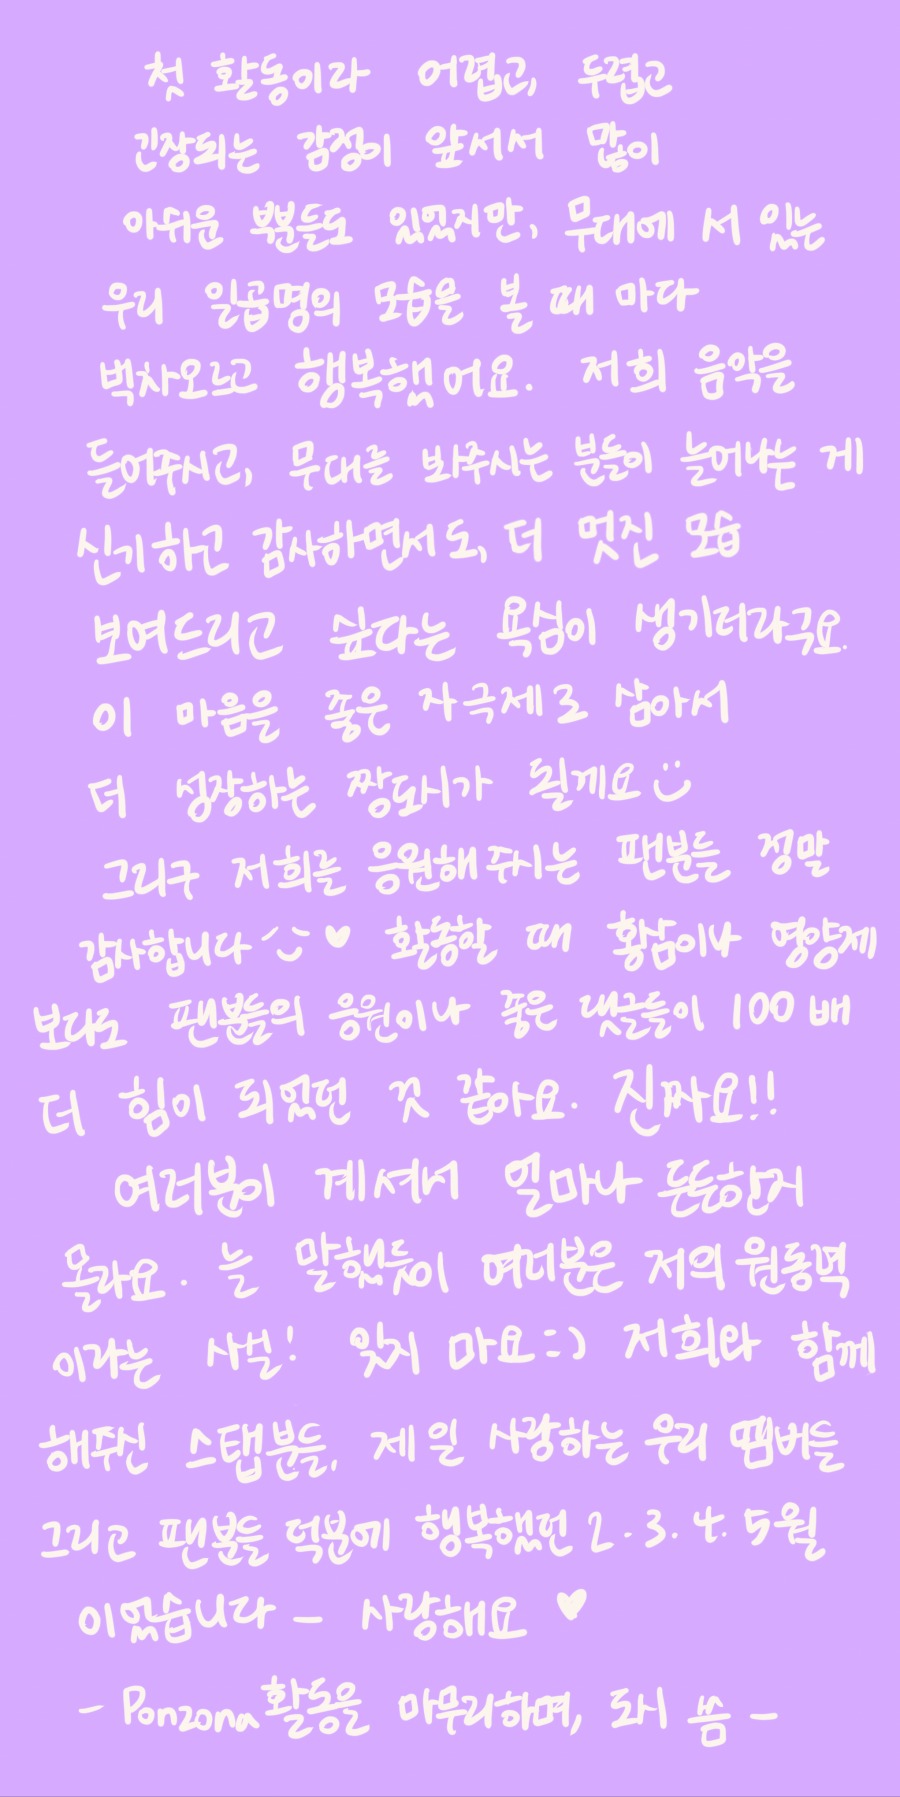 첫 활동이라 어렵고, 두렵고
긴장되는 감정이 앞서서 많이
아쉬운 부분들도 있었지만, 무대에 서 있는
우리 일곱명의 모습을 볼 때 마다
벅차오르고 행복했어요. 저희 음악을
들어주시고, 무대를 봐주시는 분들이 늘어나는 게
신기하고 감사하면서도, 더 멋진 모습
보여드리고 싶다는 욕심이 생기더라구요.
이 마음을 좋은 자극제로 삼아서
더 성장하는 짱도시가 될게요 :)
그리구 저희를 응원해주시는 팬분들 정말
감사합니다 ^^ ♥ 활동할 때 홍삼이나 영양제
보다도 팬분들의 응원이나 좋은 댓글들이 100배
더 힘이 되었던 것 같아요. 진짜요!!
여러분이 계셔서 얼마나 든든한지
몰라요. 늘 말했듯이 여러분은 저의 원동력
이라는 사실! 잊지 마요 :) 저희와 함께
해주신 스탭분들, 제일 사랑하는 우리 멤버들
그리고 팬분들 덕분에 행복했던 2.3.4.5월
이었습니다 - 사랑해요 ♥
- Ponzona 활동을 마무리하며, 도시 씀 -